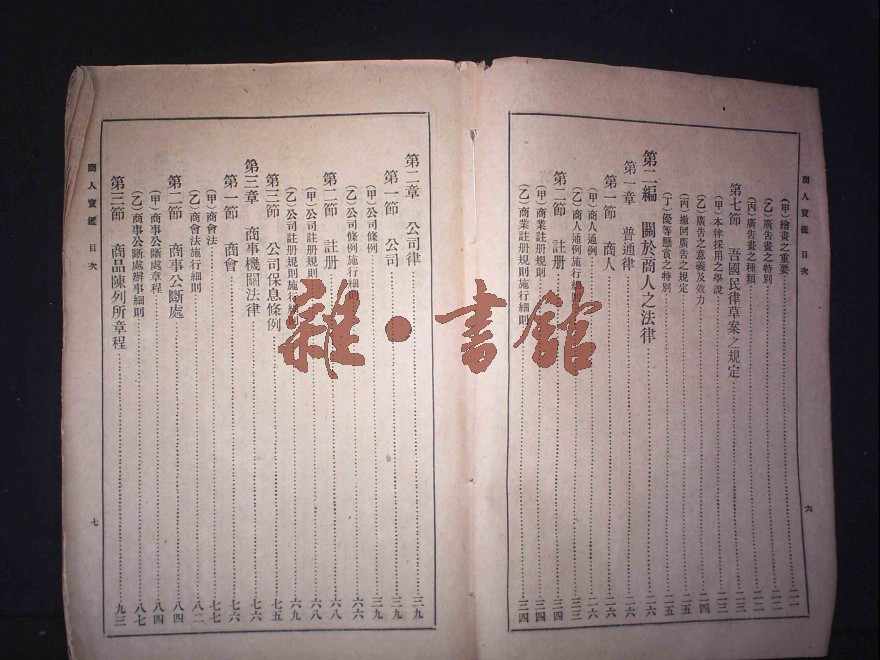 商人寶鑑 目次
六
(甲)繪畫之重要……二一
(乙)廣告畫之特別……二二
(丙)廣告畫之種類……二二
第七節 吾國民律草案之規定……二三
(甲)本律採用之學說……二三
(乙)廣告之意義及效力……二四
(丙)撤回廣告之規定……二五
(丁)優等懸賞之特別……二五
第二編 關於商人之法律……二六
第一章 普通律……二六
第一節 商人……二六
(甲)商人通例……二六
(乙)商人通例施行細則……三三
第二節 註册……三四
(甲)商業註册規則……三四
(乙)商業註册規則施行細則……三四
第二章 公司律……三九
第一節 公司……三九
(甲)公司條例……三九
(乙)公司條例施行細則……六六
第二節 註册……六八
(甲)公司註册規則……六八
(乙)公司註册規則施行細則……六九
第三節 公司保息條例……七五
第三章 商事機關法律……七六
第一節 商會……七六
(甲)商會法……七七
(乙)商會法施行細則……八二
第二節 商事公斷處……八四
(甲)商事公斷處章程……八四
(乙)商事公斷處辦事細則……八七
第三節 商品陳列所章程……九三
商人寶鑑 目次
七
雜·書館